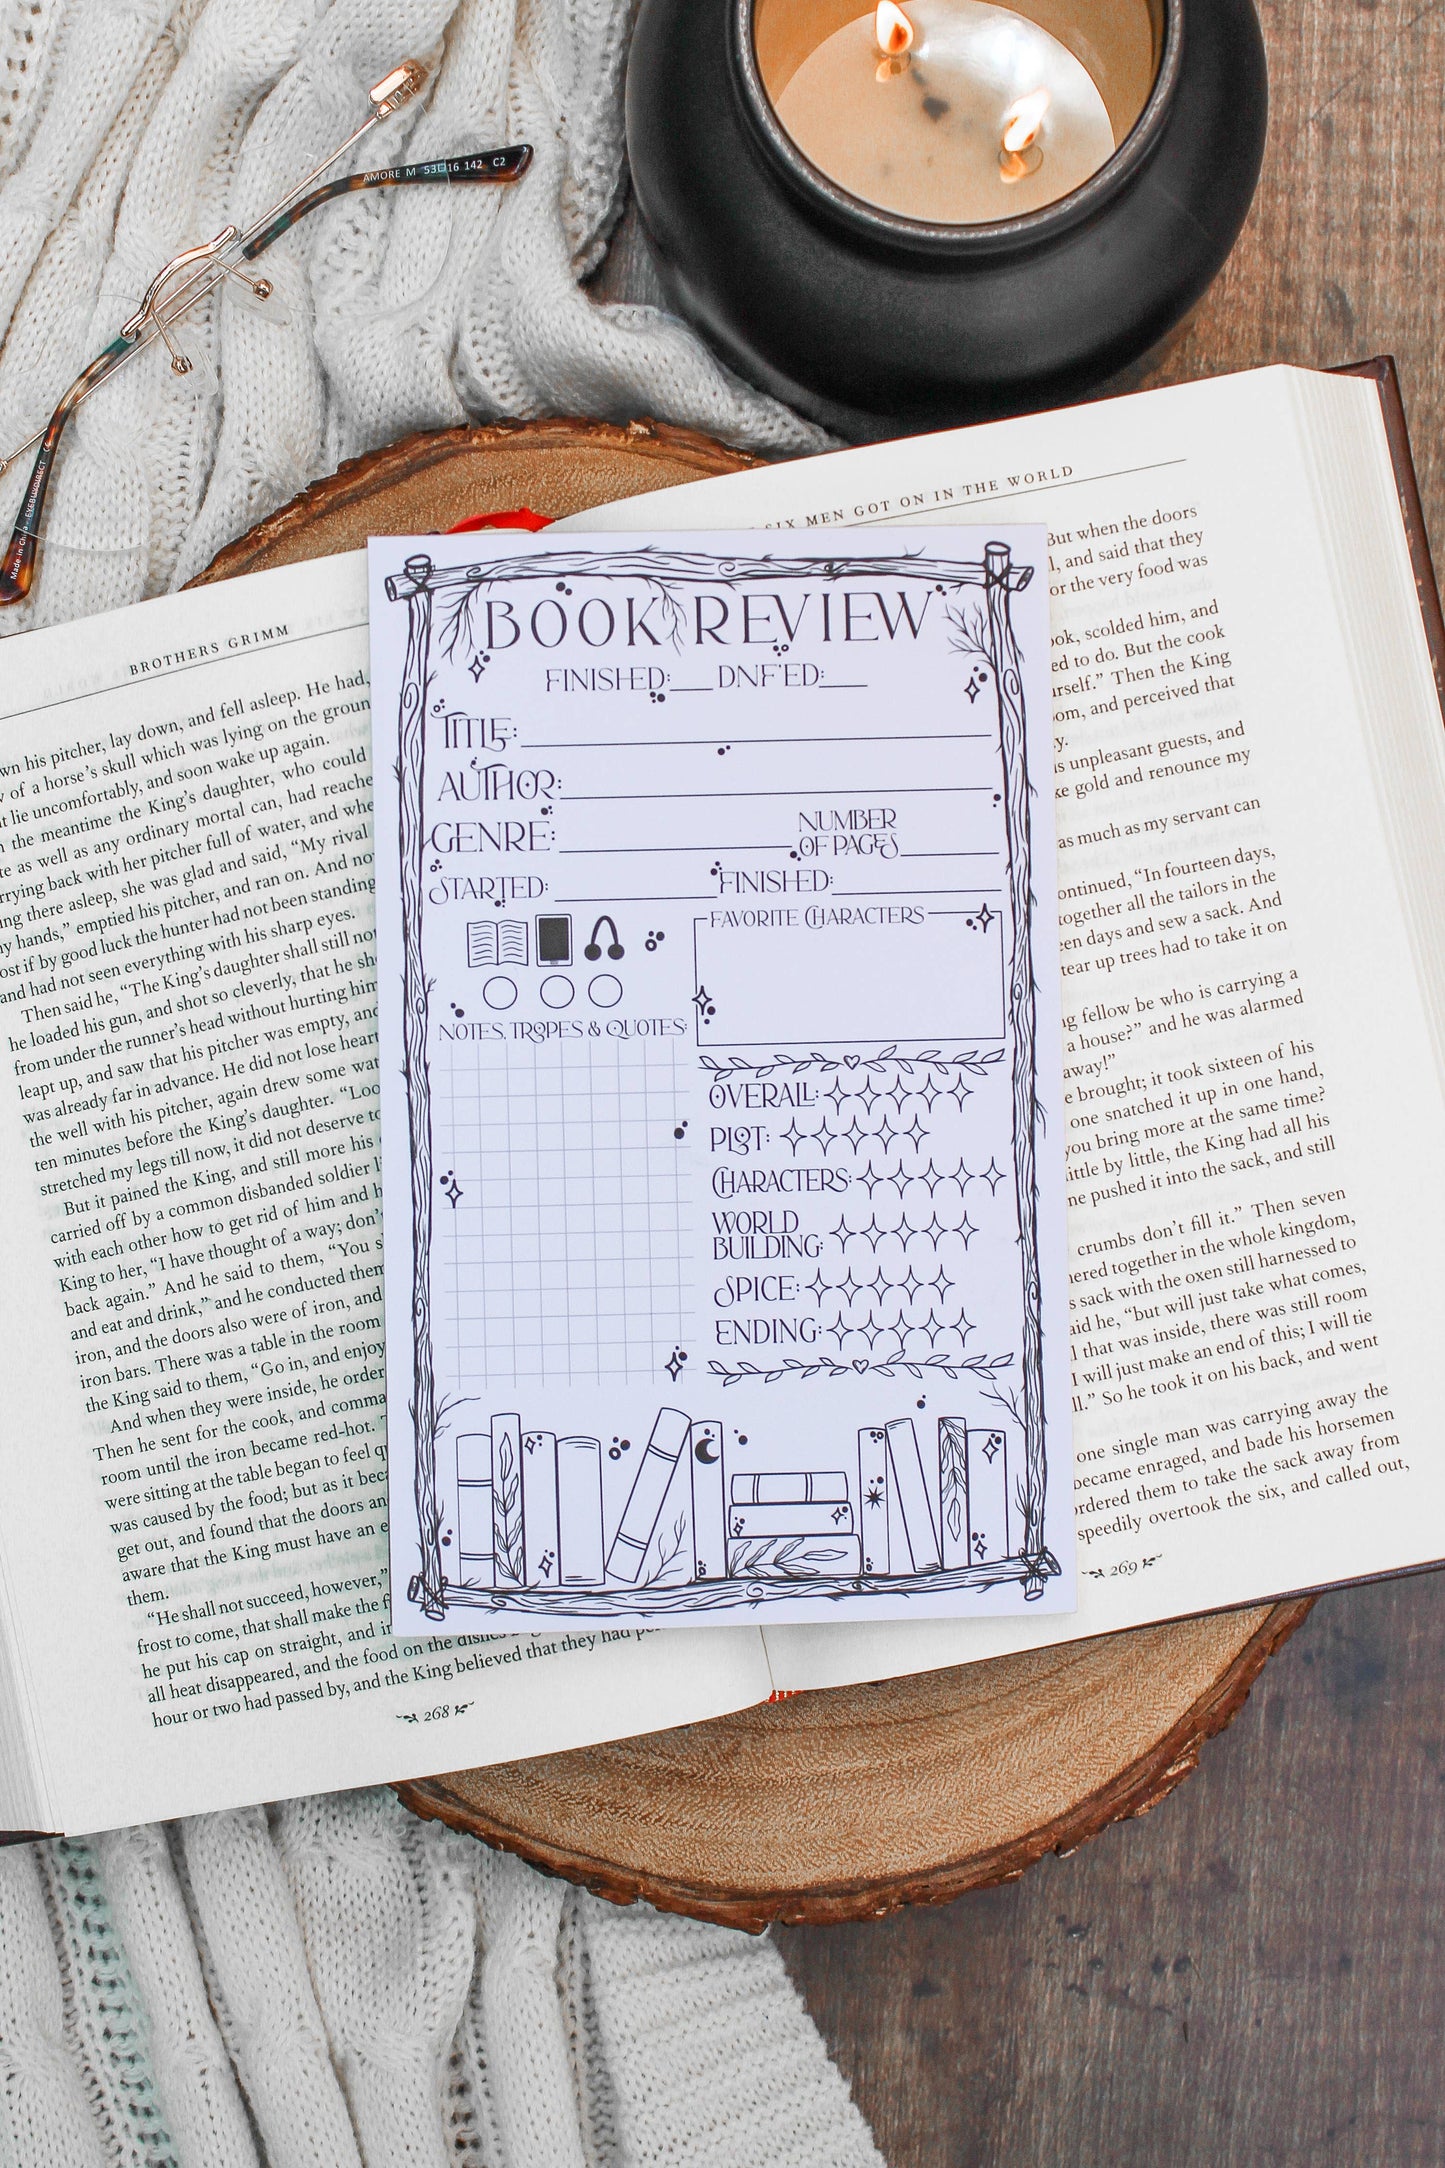 AMORE M 53□16 142 C2
Made in China - EYEBUYDIRECT CE
BROTHERS GRIMM
wn his pitcher, lay down, and fell asleep. He had,
of a horse's skull which was lying on the groun
lie uncomfortably, and soon wake up again.
the meantime the King's daughter, who could
as well as any ordinary mortal can, had reache
rrying back with her pitcher full of water, and whe
ing there asleep, she was glad and said, "My rival
hands," emptied his pitcher, and ran on. And no
ost if by good luck the hunter had not been standing
and had not seen everything with his sharp eyes.
Then said he, "The King's daughter shall still not
he loaded his gun, and shot so cleverly, that he sh
from under the runner's head without hurting him
leapt up, and saw that his pitcher was empty, and
was already far in advance. He did not lose heart
the well with his pitcher, again drew some wat
ten minutes before the King's daughter. "Loo
stretched my legs till now, it did not deserve to
But it pained the King, and still more his
carried off by a common disbanded soldier li
with each other how to get rid of him and h
King to her, "I have thought of a way; don'
back again." And he said to them, "You s
and eat and drink," and he conducted them
iron, and the doors also were of iron, and
iron bars. There was a table in the room
the King said to them, "Go in, and enjoy
And when they were inside, he order
Then he sent for the cook, and comma
room until the iron became red-hot.
were sitting at the table began to feel q
was caused by the food; but as it beca
get out, and found that the doors an
aware that the King must have an e
them.
"He shall not succeed, however,"
frost to come, that shall make the f
he put his cap on straight, and in
all heat disappeared, and the food on the dishes
hour or two had passed by, and the King believed that they had pe
268
BOOK REVIEW
FINISHED:___ DNF'ED:___
TITLE:
AUTHOR:
GENRE: NUMBER
OF PAGES
STARTED: FINISHED:
FAVORITE CHARACTERS
NOTES, TROPES & QUOTES:
OVERALL:
PLOT:
CHARACTERS:
WORLD
BUILDING:
SPICE:
ENDING:
SIX MEN GOT ON IN THE WORLD
But when the doors
, and said that they
or the very food was
ok, scolded him, and
ed to do. But the cook
urself." Then the King
om, and perceived that
y.
s unpleasant guests, and
ke gold and renounce my
as much as my servant can
ontinued, "In fourteen days,
together all the tailors in the
en days and sew a sack. And
tear up trees had to take it on
g fellow be who is carrying a
a house?" and he was alarmed
away!"
e brought; it took sixteen of his
one snatched it up in one hand,
you bring more at the same time?
ittle by little, the King had all his
ne pushed it into the sack, and still
crumbs don't fill it." Then seven
hered together in the whole kingdom,
s sack with the oxen still harnessed to
aid he, "but will just take what comes,
l that was inside, there was still room
I will just make an end of this; I will tie
ll." So he took it on his back, and went
one single man was carrying away the
became enraged, and bade his horsemen
ordered them to take the sack away from
speedily overtook the six, and called out,
269